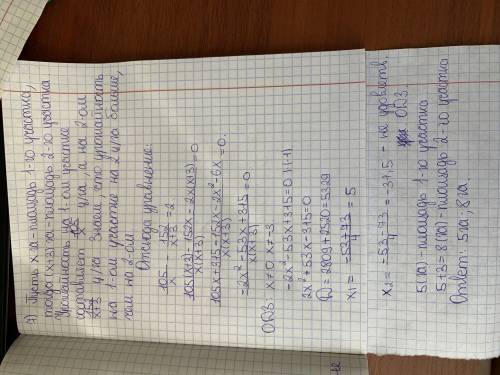 7) Пусть x га - площадь 1-го участка,
тогда (x+3) га - площадь 2-го участка
Урожайность на 1-ом участке
составляет 105/x ц/га, а на 2-ом
152/x+3 ц/га. Зная, что урожайность
на 1-ом участке на 2 ц/га больше,
чем на 2-ом
Отсюда уравнение:
105/x - 152/x+3 = 2
105(x+3) - 152x - 2x(x+3) / x(x+3) = 0
105x + 315 - 152x - 2x² - 6x / x(x+3) = 0.
-2x² - 53x + 315 / x(x+3) = 0
ОДЗ: x≠0 x≠-3
-2x² - 53x + 315 = 0 |·(-1)
2x² + 53x - 315 = 0
D = 2809 + 2520 = 5329
x₁ = -53+73 / 4 = 5
x₂ = -53-73 / 4 = -31,5 - не удовлетв.
ОДЗ.
5(га) - площадь 1-го участка
5+3=8(га) - площадь 2-го участка
Ответ: 5га; 8га.